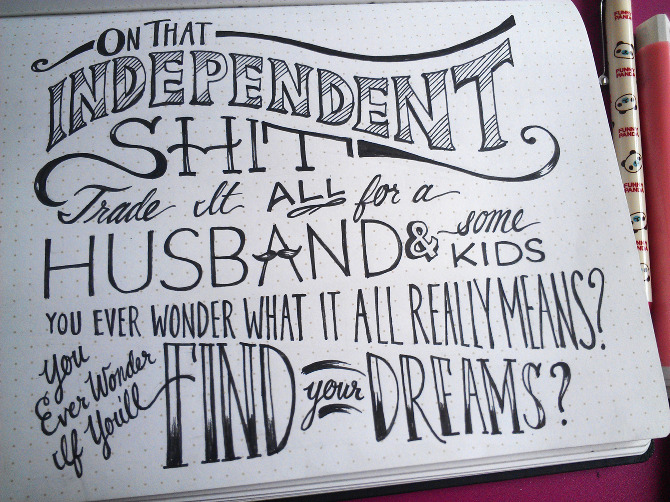 ON THAT
INDEPENDENT
SHIT
Trade It ALL for a
HUSBAND & some KIDS
YOU EVER WONDER WHAT IT ALL REALLY MEANS?
You Ever Wonder If You'll FIND your DREAMS?
FUNNY PANDA
FUNNY PANDA
FUNNY PANDA
FUNNY PANDA